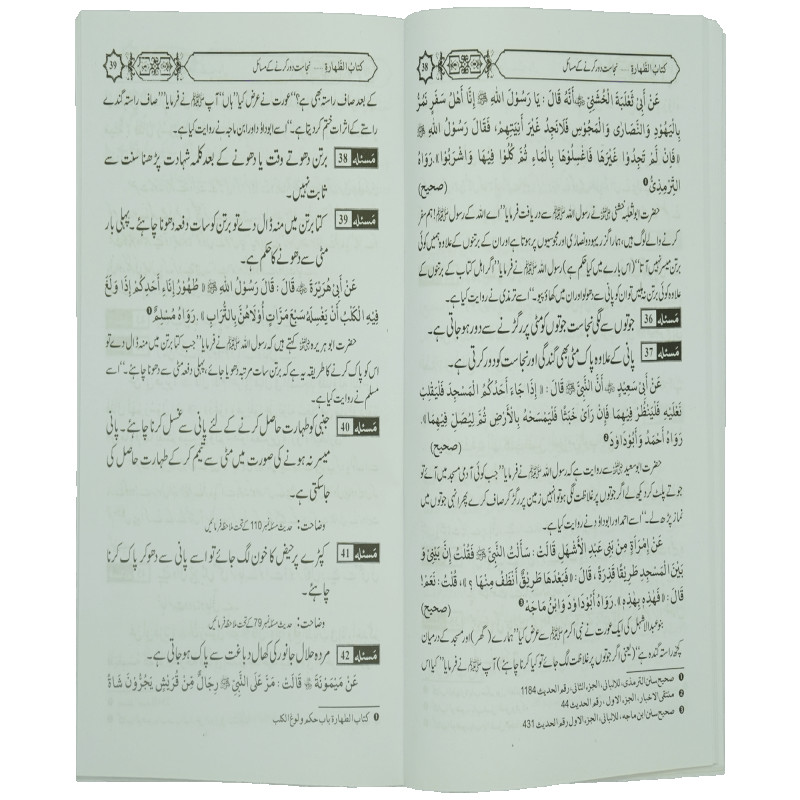 38
كتاب الطهارة .... نجاست دور کرنے کے مسائل
عَنْ أَبِيْ ثَعْلَبَةَ الْخُشَنِيِّ ﷺ أَنَّهُ قَالَ : يَا رَسُوْلَ اللهِ ﷺ إِنَّا أَهْلُ سَفَرٍ نَمُرُّ
بِالْيَهُوْدِ وَالنَّصَارٰى وَالْمَجُوْسِ فَلَانَجِدُ غَيْرَ آنِيَتِهِمْ، فَقَالَ رَسُوْلُ اللهِ ﷺ
«فَإِنْ لَمْ تَجِدُوْا غَيْرَهَا فَاغْسِلُوْهَا بِالْمَاءِ ثُمَّ كُلُوْا فِيْهَا وَاشْرَبُوْا» رَوَاهُ
التِّرْمِذِيُّ ❶ (صحيح)
حضرت ابو ثعلبہ خشنی نے رسول اللہ ﷺ سے دریافت فرمایا ''اے اللہ کے رسول ﷺ! ہم سفر
کرنے والے لوگ ہیں، ہمارا گزر یہود و نصاریٰ اور مجوسیوں پر ہوتا ہے اور ان کے برتنوں کے علاوہ ہمیں کوئی
برتن میسر نہیں آتا'' (اس بارے میں کیا حکم ہے) رسول اللہ ﷺ نے فرمایا ''اگر اہل کتاب کے برتنوں کے
علاوہ کوئی برتن نہ پائیں تو ان کو پانی سے دھولو اور ان میں کھاؤ پیو۔'' اسے ترمذی نے روایت کیا ہے۔
مسئله 36 جوتوں سے لگی نجاست جوتوں کو مٹی پر رگڑنے سے دور ہو جاتی ہے۔
مسئله 37 پانی کے علاوہ پاک مٹی بھی گندگی اور نجاست کو دور کرتی ہے۔
عَنْ أَبِيْ سَعِيْدٍ ﷺ أَنَّ النَّبِيَّ ﷺ قَالَ : « إِذَا جَاءَ أَحَدُكُمُ الْمَسْجِدَ فَلْيَقْلِبْ
نَعْلَيْهِ فَلْيَنْظُرْ فِيْهِمَا فَإِنْ رَأَى خَبَثًا فَلْيَمْسَحْهُ بِالْأَرْضِ ثُمَّ لِيُصَلِّ فِيْهِمَا».
رَوَاهُ أَحْمَدُ وَأَبُوْدَاوٗدَ ❷ (صحيح)
حضرت ابوسعید سے روایت ہے کہ رسول اللہ ﷺ نے فرمایا ''جب کوئی آدمی مسجد میں آئے تو
جوتے پلٹ کر دیکھ لے اگر جوتوں پر غلاظت لگی ہو تو انہیں زمین پر رگڑ کر صاف کرے پھر انہی جوتوں میں
نماز پڑھ لے۔'' اسے احمد اور ابوداؤد نے روایت کیا ہے۔
عَنْ إِمْرَأَةٍ مِنْ بَنِيْ عَبْدِ الْأَشْهَلِ قَالَتْ : سَأَلْتُ النَّبِيَّ ﷺ فَقُلْتُ إِنَّ بَيْنِيْ وَ
بَيْنَ الْمَسْجِدِ طَرِيْقًا قَذِرَةً ، قَالَ : « فَبَعْدَهَا طَرِيْقٌ أَنْظَفُ مِنْهَا ؟ »، قُلْتُ : نَعَمْ!
قَالَ : « فَهٰذِهِ بِهٰذِهِ » رَوَاهُ أَبُوْدَاوٗدَ وَابْنُ مَاجَهْ ❸ (صحيح)
بنو عبدالاشہل کی ایک عورت نے نبی اکرم ﷺ سے عرض کیا ''ہمارے (گھر) اور مسجد کے درمیان
کچھ راستہ گندہ ہے'' (یعنی اگر جوتوں پر غلاظت لگ جائے تو کیا کرنا چاہئے) آپ ﷺ نے فرمایا ''کیا اس
❶ صحيح سنن الترمذى، للالبانى، الجزء الثانى ، رقم الحديث 1184
❷ منتقى الاخبار، الجزء الاول ، رقم الحديث 44
❸ صحيح سنن ابن ماجه ، للالبانى، الجزء الاول رقم الحديث 431
39
كتاب الطهارة .... نجاست دور کرنے کے مسائل
کے بعد صاف راستہ بھی ہے؟'' عورت نے عرض کیا ''ہاں'' آپ ﷺ نے فرمایا ''صاف راستہ گندے
راستے کے اثرات ختم کر دیتا ہے۔'' اسے ابوداؤد اور ابن ماجہ نے روایت کیا ہے۔
مسئله 38 برتن دھوتے وقت یا دھونے کے بعد کلمہ شہادت پڑھنا سنت سے
ثابت نہیں۔
مسئله 39 کتا برتن میں منہ ڈال دے تو برتن کو سات دفعہ دھونا چاہئے۔ پہلی بار
مٹی سے دھونے کا حکم ہے۔
عَنْ أَبِيْ هُرَيْرَةَ ﷺ قَالَ : قَالَ رَسُوْلُ اللهِ ﷺ « طُهُوْرُ إِنَاءِ أَحَدِكُمْ إِذَا وَلَغَ
فِيْهِ الْكَلْبُ أَنْ يَغْسِلَهُ سَبْعَ مَرَّاتٍ أُوْلَاهُنَّ بِالتُّرَابِ » . رَوَاهُ مُسْلِمٌ ❶
حضرت ابوہریرہ کہتے ہیں کہ رسول اللہ ﷺ نے فرمایا ''جب کتا برتن میں منہ ڈال دے تو
اس کو پاک کرنے کا طریقہ یہ ہے کہ برتن سات مرتبہ دھویا جائے، پہلی دفعہ مٹی سے دھونا چاہئے۔'' اسے
مسلم نے روایت کیا ہے۔
مسئله 40 جنبی کو طہارت حاصل کرنے کے لئے پانی سے غسل کرنا چاہئے۔ پانی
میسر نہ ہونے کی صورت میں مٹی سے تیمم کر کے طہارت حاصل کی
جا سکتی ہے۔
وضاحت: حدیث مسئلہ نمبر 110 کے تحت ملاحظہ فرمائیں
مسئله 41 کپڑے پر حیض کا خون لگ جائے تو اسے پانی سے دھو کر پاک کرنا
چاہئے۔
وضاحت: حدیث مسئلہ نمبر 79 کے تحت ملاحظہ فرمائیں
مسئله 42 مردہ حلال جانور کی کھال دباغت سے پاک ہو جاتی ہے۔
عَنْ مَيْمُوْنَةَ ﷺ قَالَتْ : مَرَّ عَلَى النَّبِيِّ ﷺ رِجَالٌ مِنْ قُرَيْشٍ يَجُرُّوْنَ شَاةً
❶ كتاب الطهارة باب حكم ولوغ الكلب